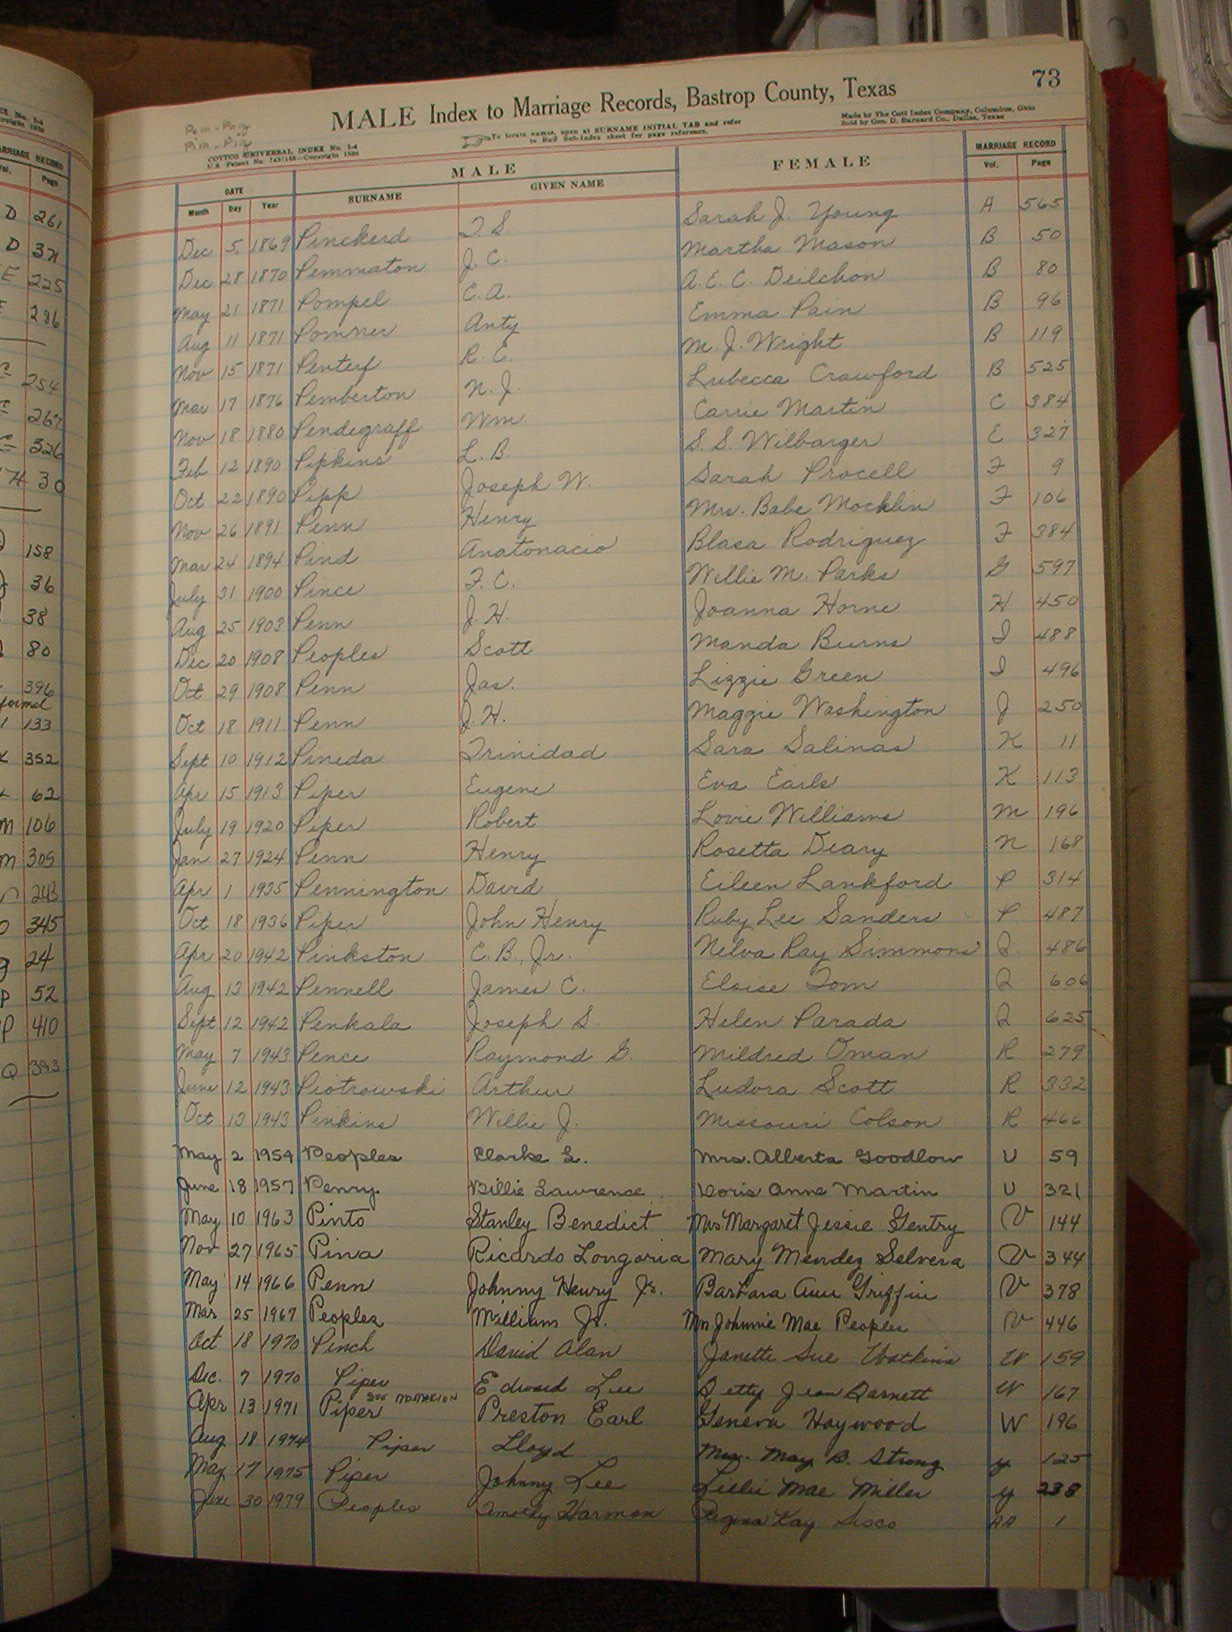 73
MALE Index to Marriage Records, Bastrop County, Texas
Pem - Pony
Pim - Piz
COTTCO UNIVERSAL INDEX No. 1-4
To locate names, open at SURNAME INITIAL TAB and refer
to Buff Sub-Index sheet for page reference.
Made by The Cott Index Company, Columbus, Ohio
Sold by Geo. D. Barnard Co., Dallas, Texas
DATE MALE FEMALE MARRIAGE RECORD
Month Day Year SURNAME GIVEN NAME Vol. Page
Dec 5 1869 Pinckerd T. S. Sarah J. Young A 565
Dec 28 1870 Pemmaton J. C. Martha Mason B 50
May 21 1871 Pompel C. A. A. E. C. Deilchon B 80
Aug 11 1871 Pomrer Anty Emma Pain B 96
Nov 15 1871 Penteif R. E. M. J. Wright B 119
Mar 17 1876 Pemberton N. J. Lubecca Crawford B 525
Nov 18 1880 Pendegraff Wm Carrie Martin C 384
Feb 12 1890 Pipkins L. B. S. S. Wilbarger E 327
Oct 22 1890 Pipp Joseph W. Sarah Procell F 9
Nov 26 1891 Penn Henry Mrs. Babe Mocklin F 106
Mar 24 1894 Pind Anatonacio Blasa Rodriguez F 384
July 31 1900 Pince F. C. Willie M. Parks G 597
Aug 25 1903 Penn J. H. Joanna Horne H 450
Dec 20 1908 Peoples Scott Manda Burns I 488
Oct 29 1908 Penn Jas. Lizzie Green I 496
Oct 18 1911 Penn J. H. Maggie Washington J 250
Sept 10 1912 Pineda Trinidad Sara Salinas K 11
Apr 15 1913 Piper Eugene Eva Earls K 113
July 19 1920 Piper Robert Lovie Williams M 196
Jan 27 1924 Penn Henry Rosetta Deary N 168
Apr 1 1935 Pennington David Eileen Lankford P 314
Oct 18 1936 Piper John Henry Ruby Lee Sanders P 487
Apr 20 1942 Pinkston C. B., Jr. Nelva Ray Simmons Q 486
Aug 13 1942 Pennell James C. Eloise Tom Q 606
Sept 12 1942 Penkala Joseph S. Helen Parada Q 625
May 7 1943 Pence Raymond G. Mildred Oman R 279
June 12 1943 Piotrowski Arthur Ludora Scott R 332
Oct 13 1943 Pinkins Willie J. Missouri Colson R 466
May 2 1954 Peoples Clarke L. Mrs. Alberta Goodlow U 59
June 18 1957 Penry Billie Lawrence Doris Anne Martin U 321
May 10 1963 Pinto Stanley Benedict Mrs Margaret Jessie Gentry V 144
Nov 27 1965 Pina Ricardo Longoria Mary Mendez Selvera V 344
May 14 1966 Penn Johnny Henry Jr. Barbara Ann Griffin V 378
Mar 25 1967 Peoples William Jr. Mrs Johnnie Mae Peoples V 446
Oct 18 1970 Pinch David Alan Janette Sue Watkins W 159
Dec. 7 1970 Piper Edward Lee Betty Jean Barnett W 167
Apr 13 1971 Piper Preston Earl Geneva Haywood W 196
Aug 18 1974 Piper Lloyd Mrs. May B. Strong Y 125
May 17 1975 Piper Johnny Lee Lillie Mae Miller Y 238
June 30 1979 Peoples Timothy Harmon Regina Kay Sisco AA 1
MARRIAGE RECORD
Vol. Page
D 261
D
E 225
236
254
267
326
H 30
158
36
38
80
396
133
352
62
M 106
M 305
243
345
24
P 52
P 410
Q 393